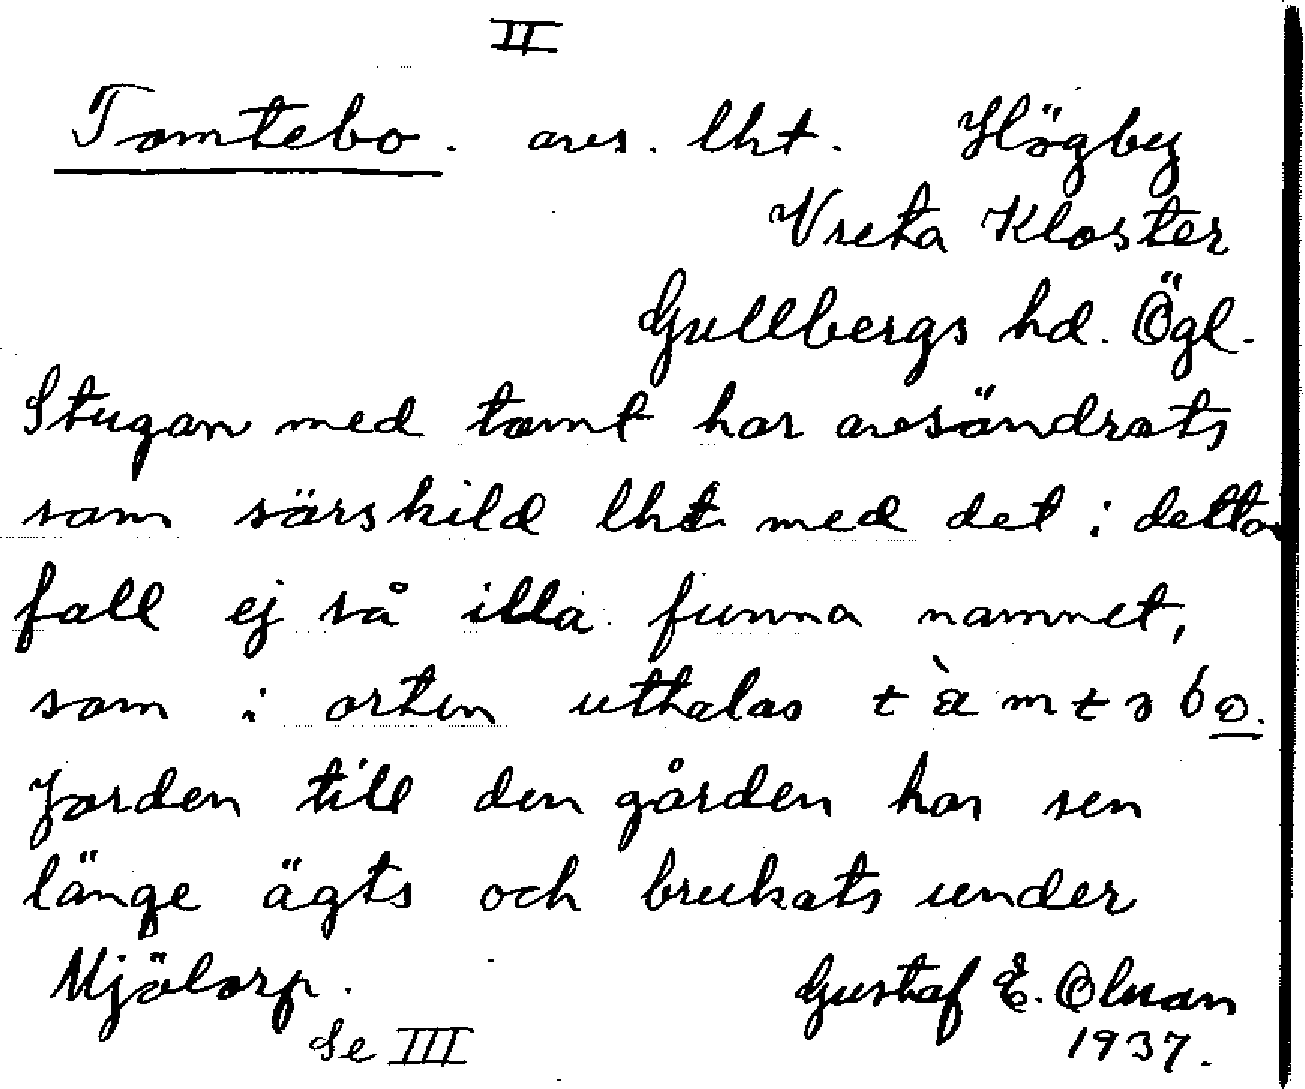 II
Tomtebo. avs. lht. Högby
Vreta Kloster
Gullbergs hd. Ögl.
Stugan med tomt har avsöndrats
som särskild lht med det i detta
fall ej så illa funna namnet,
som i orten uttalas
Jorden till den gården har sen
länge ägts och brukats under
Mjölorp.
Gustaf E. Olman
Se III
1937.